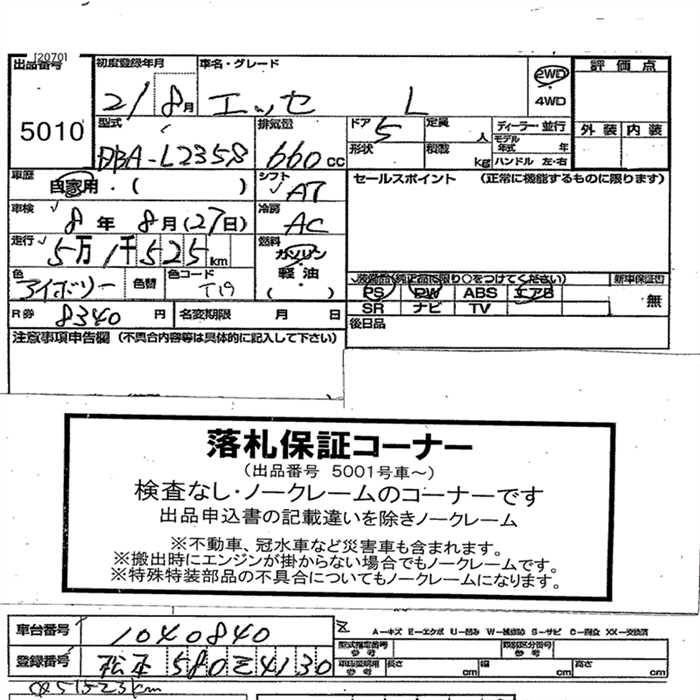 [20701
出品番号 初度登録年月 車名・グレード 評価点
5010 21/8月 エッセ L 2WD
4WD 外装 内装
型式 排気量 ドア 定員 ディーラー・並行
DBA-L235S 660cc 5 人 モデル年式 年
形状 積載 kg ハンドル 左・右
車歴 シフト セールスポイント (正常に機能するものに限ります)
自家用・( ) AT
車検 冷房
8年 8月(27日) AC
走行 燃料
5万1千525km ガソリン
軽油
( )
色 色替 色コード 装備品(純正品に限り○をつけてください) 新車保証書
アイボリー T19 PS PW ABS エアB 無
SR ナビ TV
R券 8340円 名変期限 月 日 後日品
注意事項申告欄 (不具合内容等は具体的に記入して下さい)
落札保証コーナー
(出品番号 5001号車~)
検査なし・ノークレームのコーナーです
出品申込書の記載違いを除きノークレーム
※不動車、冠水車など災害車も含まれます。
※搬出時にエンジンが掛からない場合でもノークレームです。
※特殊特装部品の不具合についてもノークレームになります。
車台番号 1040840
A-キズ E-エクボ U-凹み W-補修跡 S-サビ C-腐食 XX-交換済
型式指定番号 参考 類別区分番号 参考
登録番号 松本 580 こ 4130
長さ cm 幅 cm 高さ cm
51525km